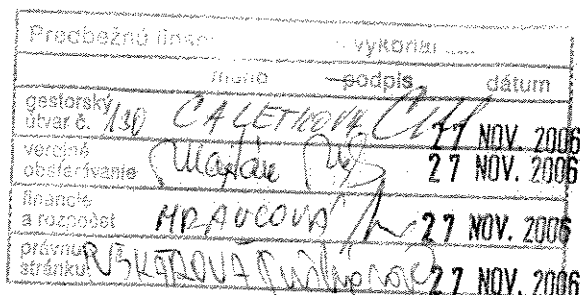 Predbežnú finan vykonal
meno podpis dátum
gestorský
útvar č. 130 CALETKOVÁ 27 NOV. 2006
verejné
obstarávanie 27 NOV. 2006
financie
a rozpočet MRAVCOVÁ 27 NOV. 2006
právnu
stránku 27 NOV. 2006